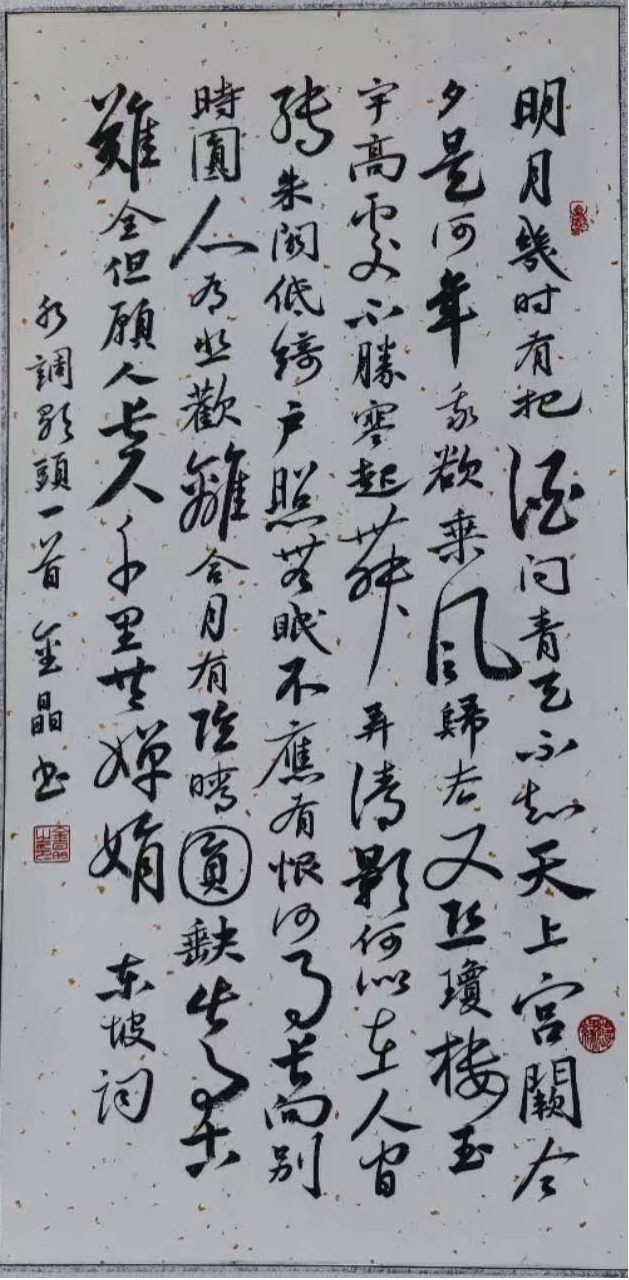 明月幾时有把酒问青天不知天上宫闕今
夕是何年我欲乘风歸去又恐瓊楼玉
宇高處不勝寒起舞弄清影何似在人间
转朱阁低绮户照無眠不應有恨何事长向别
時圓人有悲歡離合月有陰晴圓缺此事古
難全但願人长久千里共嬋娟 东坡词
水調歌頭一首 金晶书